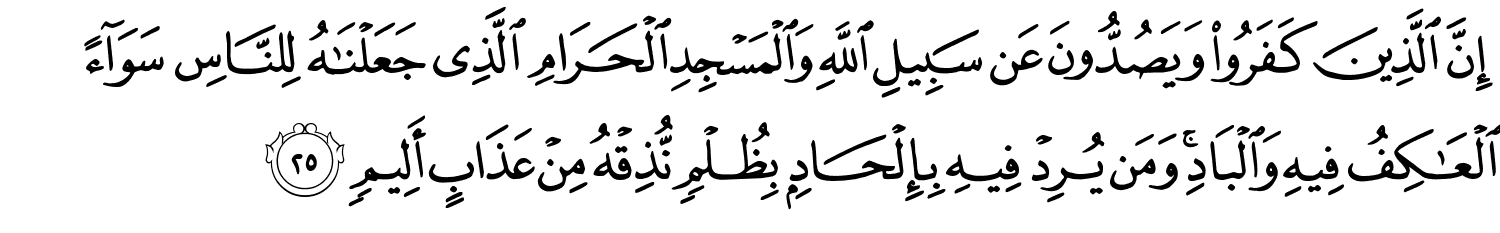 إِنَّ ٱلَّذِينَ كَفَرُوا۟ وَيَصُدُّونَ عَن سَبِيلِ ٱللَّهِ وَٱلْمَسْجِدِ ٱلْحَرَامِ ٱلَّذِى جَعَلْنَٰهُ لِلنَّاسِ سَوَآءً
ٱلْعَٰكِفُ فِيهِ وَٱلْبَادِ ۚ وَمَن يُرِدْ فِيهِ بِإِلْحَادٍۭ بِظُلْمٍ نُّذِقْهُ مِنْ عَذَابٍ أَلِيمٍ ٢٥